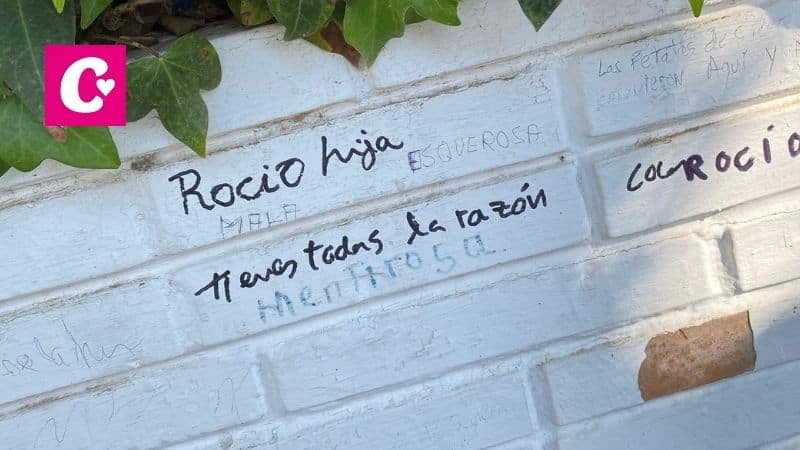 Los Petalos de
Aquí y
Rocio hija ESQUEROSA
MALA
con ROCÍO
tienes todas la razón
mentirosa